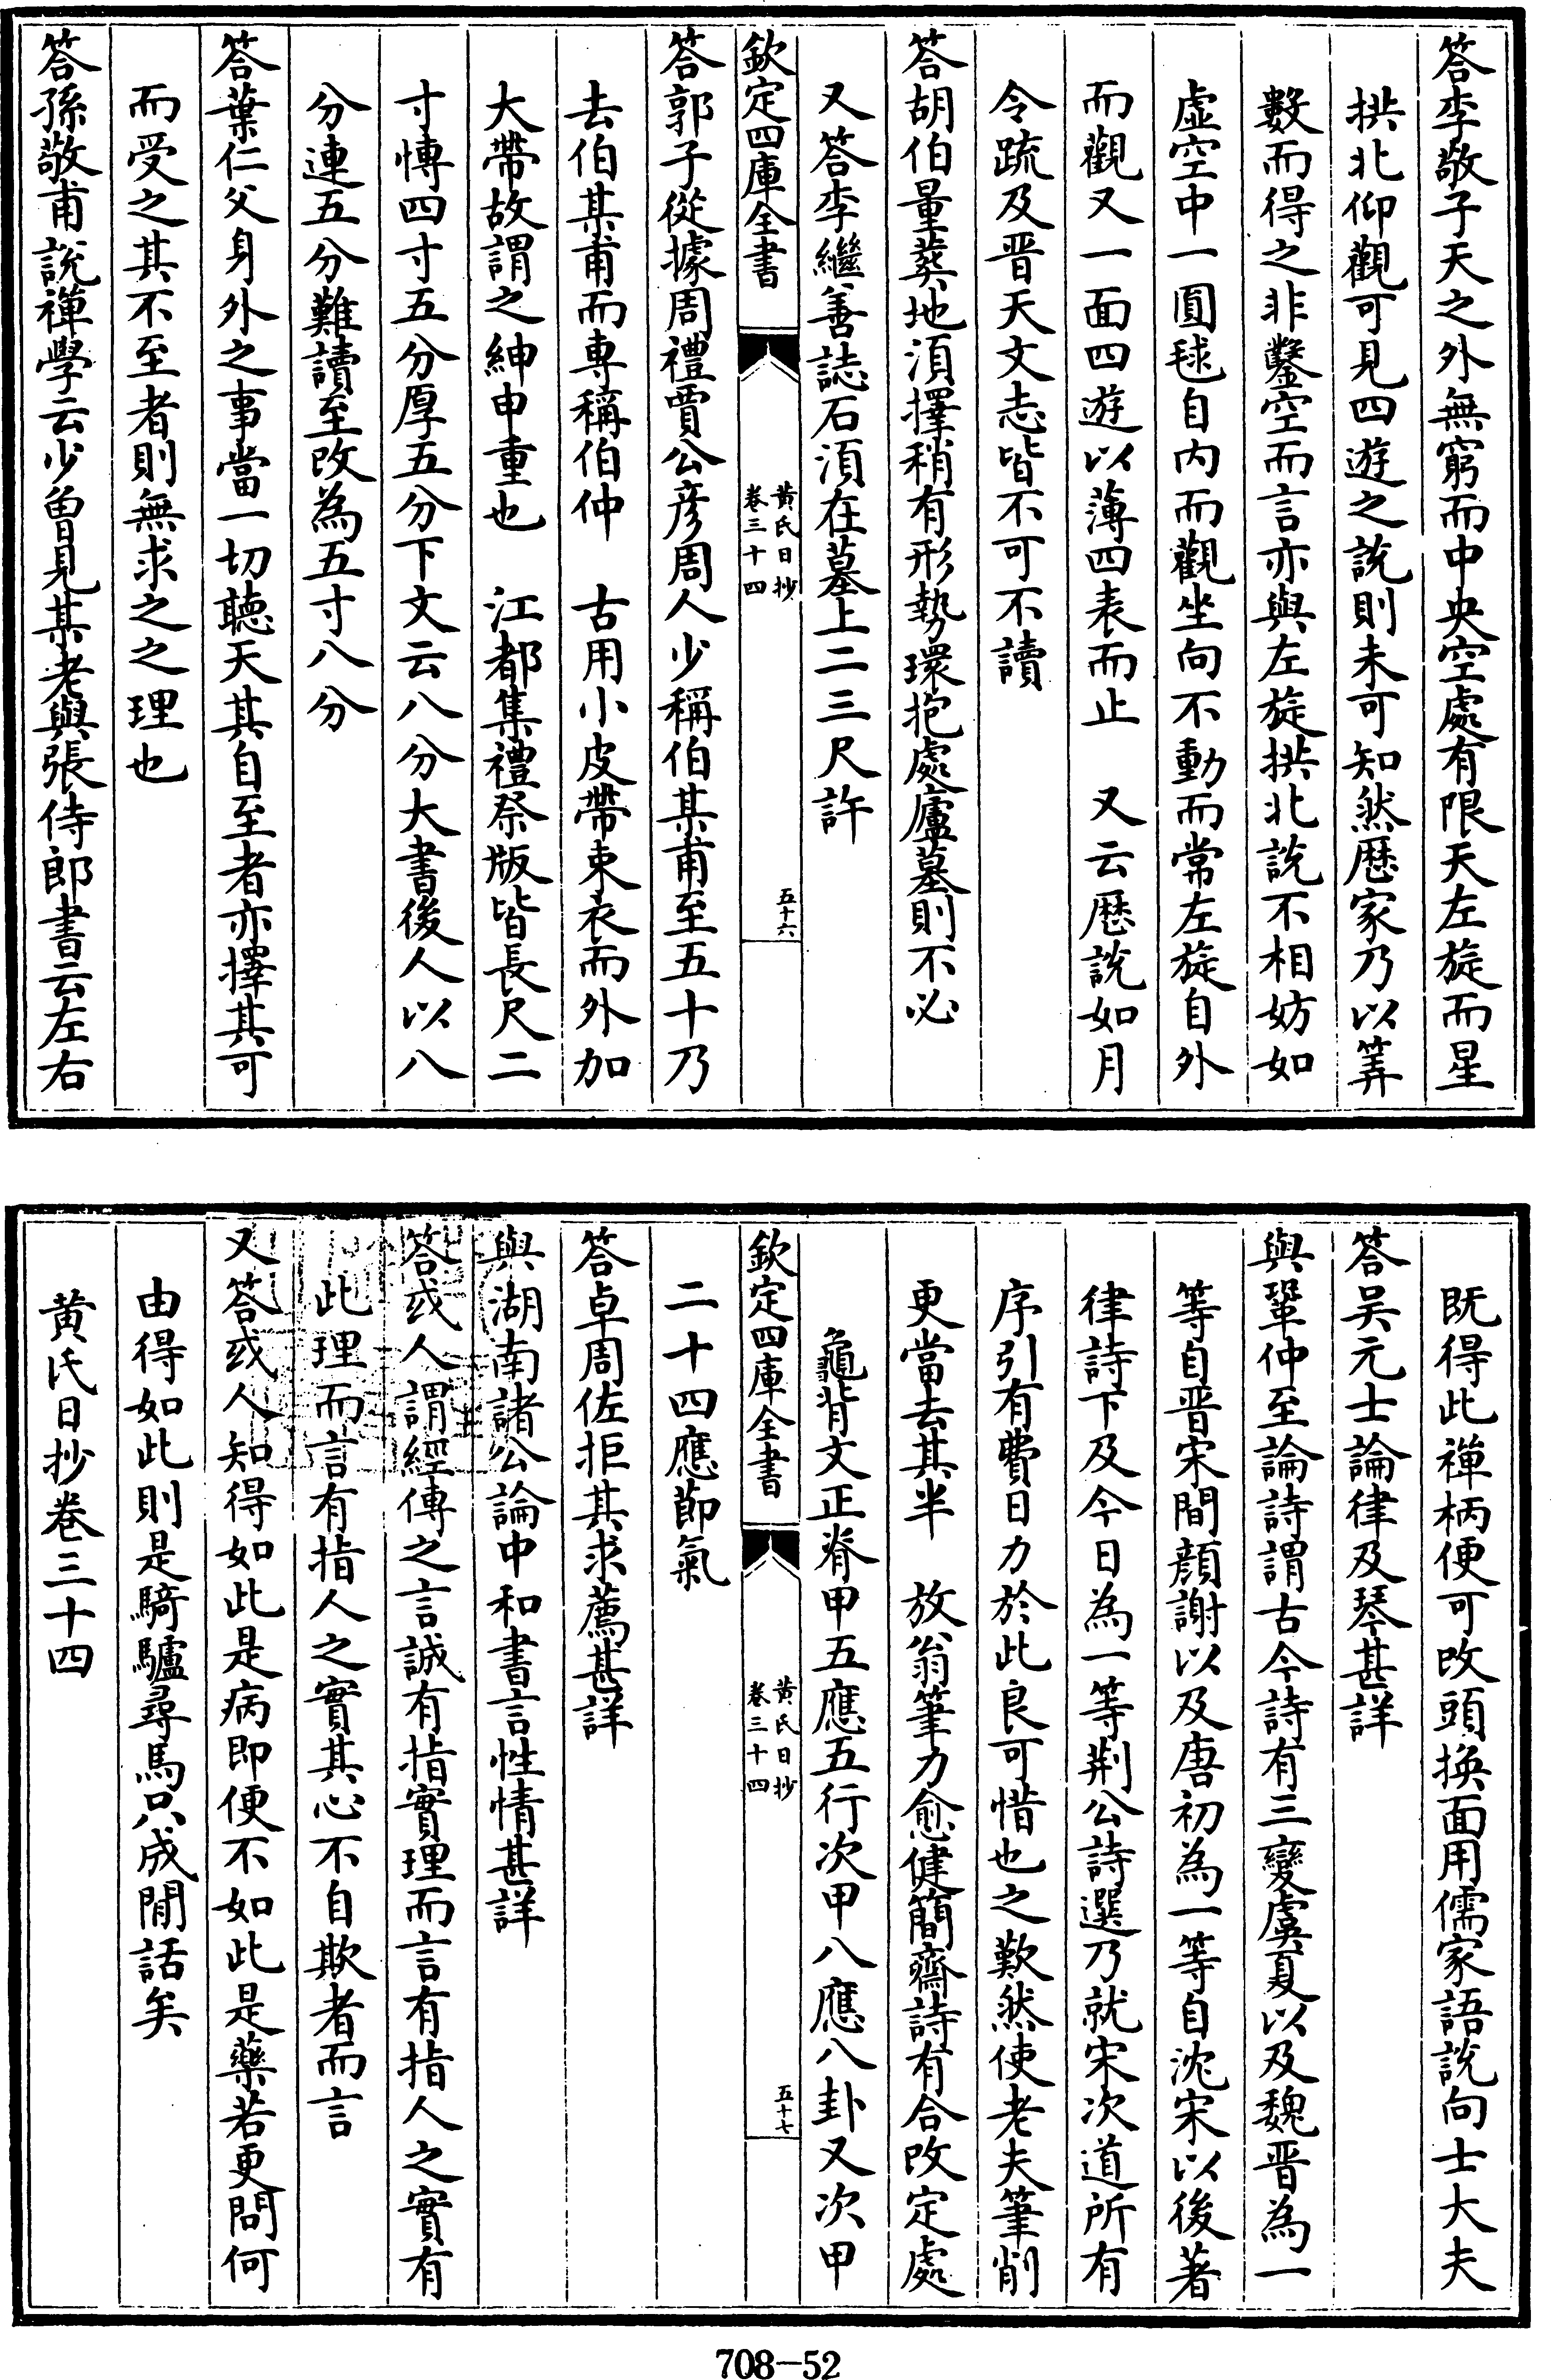 答李敬子天之外無窮而中央空處有限天左旋而星
拱北仰觀可見四遊之說則未可知然厯家乃以筭
數而得之非鑿空而言亦與左旋拱北說不相妨如
虛空中一圓毬自内而觀坐向不動而常左旋自外
而觀又一面四遊以薄四表而止　又云厯說如月
令疏及晉天文志皆不可不讀
答胡伯量葬地須擇稍有形勢環抱處廬墓則不必
又答李繼善誌石須在墓上二三尺許
欽定四庫全書
黃氏日抄
卷三十四
五十六
答郭子從據周禮賈公彦周人少稱伯某甫至五十乃
去伯某甫而專稱伯仲　古用小皮帶束衣而外加
大帶故謂之紳申重也　江都集禮祭版皆長尺二
寸愽四寸五分厚五分下文云八分大書後人以八
分連五分難讀至改為五寸八分
答葉仁父身外之事當一切聽天其自至者亦擇其可
而受之其不至者則無求之之理也
答孫敬甫說禪學云少曽見某老與張侍郎書云左右
既得此禪柄便可改頭換面用儒家語說向士大夫
答吴元士論律及琴甚詳
與鞏仲至論詩謂古今詩有三變虞夏以及魏晉為一
等自晉宋間顔謝以及唐初為一等自沈宋以後著
律詩下及今日為一等荆公詩選乃就宋次道所有
序引有費日力於此良可惜也之歎然使老夫筆削
更當去其半　放翁筆力愈健簡齋詩有合改定處
龜背文正脊甲五應五行次甲八應八卦又次甲
欽定四庫全書
黃氏日抄
卷三十四
五十七
二十四應節氣
答卓周佐拒其求薦甚詳
與湖南諸公論中和書言性情甚詳
答或人謂經傳之言誠有指實理而言有指人之實有
此理而言有指人之實其心不自欺者而言
又答或人知得如此是病即便不如此是藥若更問何
由得如此則是騎驢尋馬只成閒話矣
黃氏日抄卷三十四
708-52